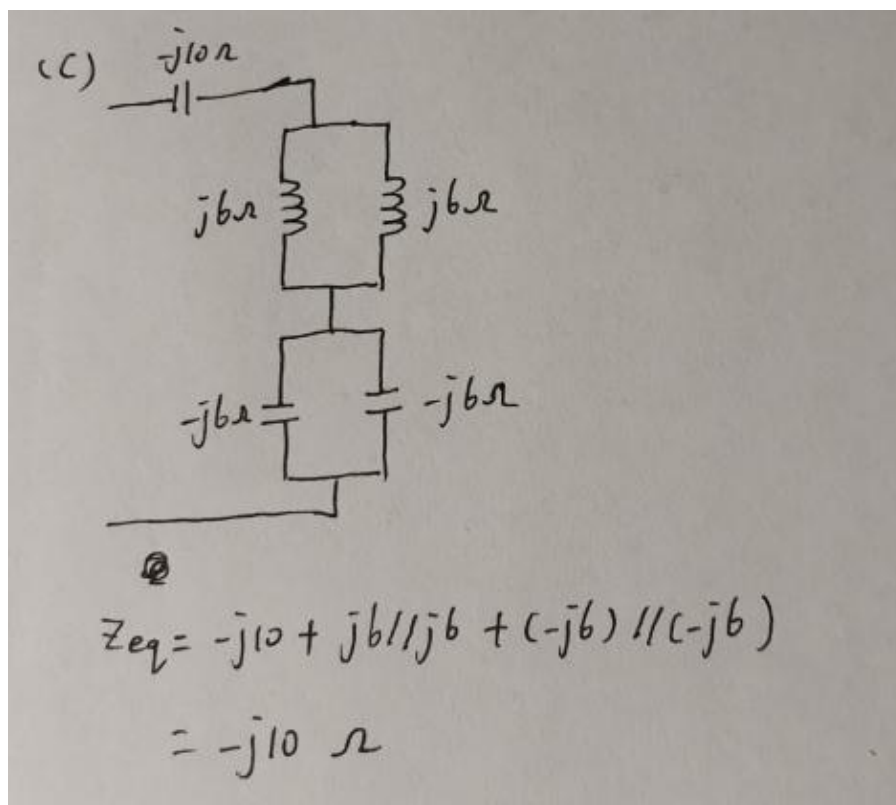 (C) -j10Ω
j6Ω j6Ω
-j6Ω -j6Ω
Zeq = -j10 + j6//j6 + (-j6) // (-j6)
= -j10 Ω